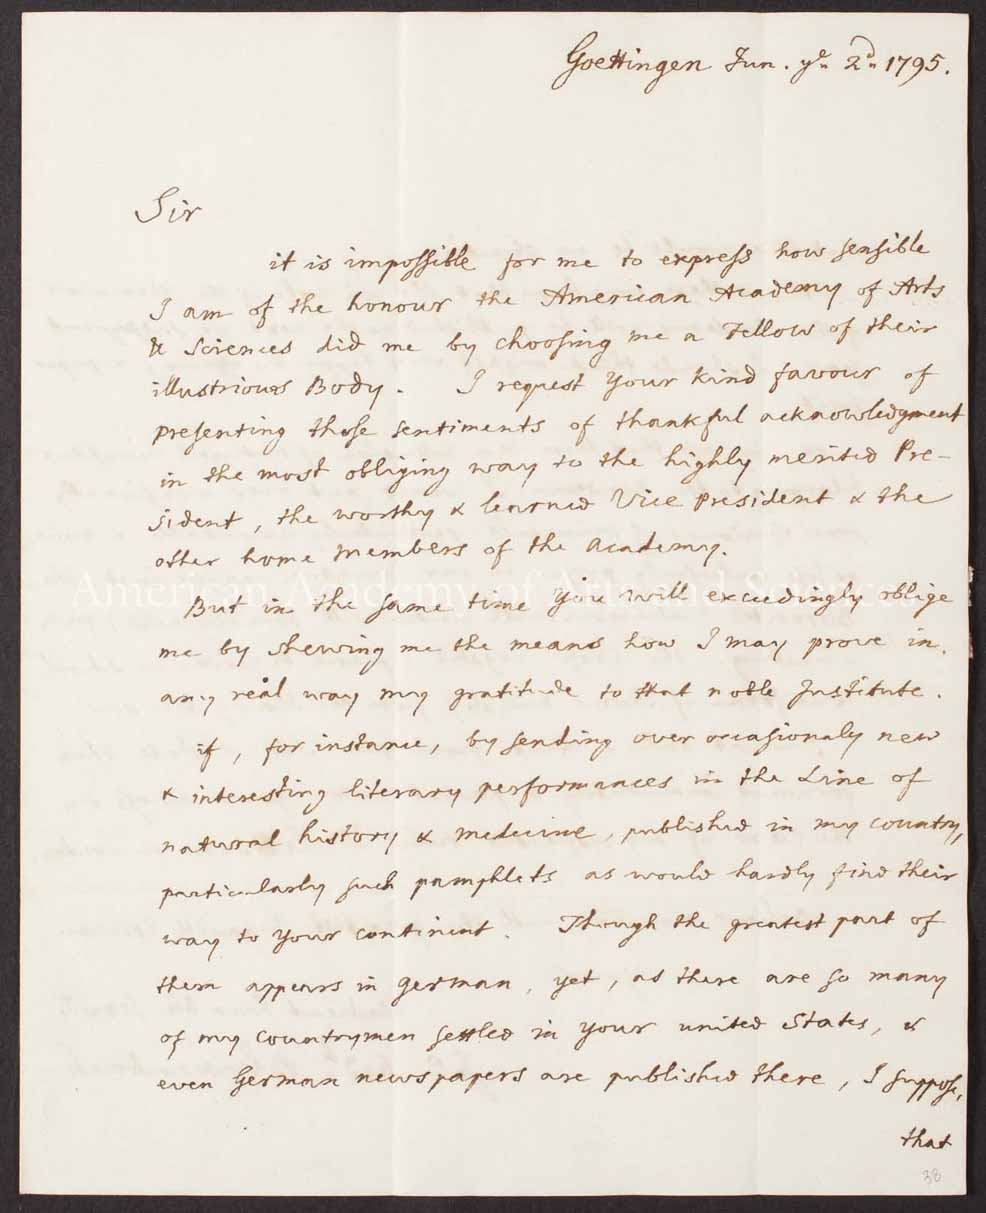 Goettingen Jun. yᵉ 2ᵈ 1795.
Sir
it is impossible for me to express how sensible
I am of the honour the American Academy of Arts
& Sciences did me by choosing me a Fellow of their
illustrious Body. I request your kind favour of
presenting those sentiments of thankful acknowledgment
in the most obliging way to the highly merited Pre-
sident, the worthy & learned Vice president & the
other home members of the academy.
American Academy of Arts and Sciences
But in the same time you will exceedingly oblige
me by shewing me the means how I may prove in
any real way my gratitude to that noble Institute.
if, for instance, by sending over occasionaly new
& interesting literary performances in the Line of
natural history & medicine, published in my country,
particularly such pamphlets as would hardly find their
way to your continent. Though the greatest part of
them appears in german, yet, as there are so many
of my countrymen settled in your united States, &
even German newspapers are published there, I suppose,
that
38